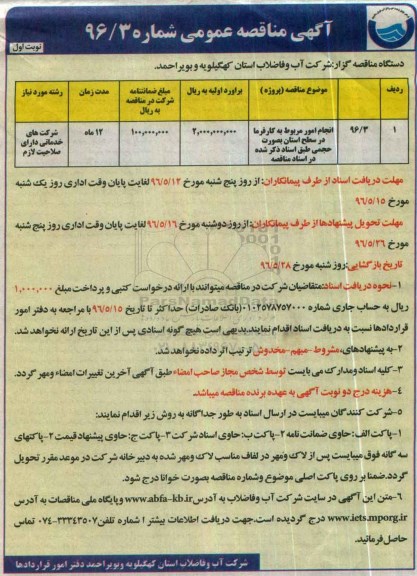 آگهی مناقصه عمومی شماره ۹۶/۳
نوبت اول
دستگاه مناقصه گزار: شرکت آب وفاضلاب استان کهگیلویه و بویراحمد.
ردیف
موضوع مناقصه (پروژه)
براورد اولیه به ریال
مبلغ ضمانتنامه شرکت در مناقصه به ریال
مدت زمان
رشته مورد نیاز
۱
۹۶/۳
انجام امور مربوط به کارفرما در سطح استان بصورت حجمی طبق اسناد ذکر شده در اسناد مناقصه
۲,۰۰۰,۰۰۰,۰۰۰
۱۰۰,۰۰۰,۰۰۰
۱۲ ماه
شرکت های خدماتی دارای صلاحیت لازم
مهلت دریافت اسناد از طرف پیمانکاران: از روز پنج شنبه مورخ ۹۶/۵/۱۲ لغایت پایان وقت اداری روز یک شنبه
مورخ ۹۶/۵/۱۵
مهلت تحویل پیشنهادها از طرف پیمانکاران: از روز دوشنبه مورخ ۹۶/۵/۱۶ لغایت پایان وقت اداری روز پنج شنبه
مورخ ۹۶/۵/۲۶
تاریخ بازگشایی: روز شنبه مورخ ۹۶/۵/۲۸
۱-نحوه دریافت اسناد: متقاضیان شرکت در مناقصه میتوانند با ارائه درخواست کتبی و پرداخت مبلغ ۱,۰۰۰,۰۰۰
ریال به حساب جاری شماره ۰۱۰۲۵۷۸۷۵۷۰۰۰ (بانک صادرات) حداکثر تا تاریخ ۹۶/۵/۱۵ با مراجعه به دفتر امور
قراردادها نسبت به دریافت اسناد اقدام نمایند. بدیهی است هیچ گونه اسنادی پس از این تاریخ ارائه نخواهد شد.
۲-به پیشنهادهای، مشروط-مبهم-مخدوش ترتیب اثر داده نخواهد شد.
۳-کلیه اسناد ومدارک می بایست توسط شخص مجاز صاحب امضاء طبق آگهی آخرین تغییرات امضاء ومهر گردد.
۴-هزینه درج دو نوبت آگهی به عهده برنده مناقصه میباشد.
۵-شرکت کنندگان میبایست در ارسال اسناد به طور جداگانه به روش زیر اقدام نمایند:
۱-پاکت الف: حاوی ضمانت نامه ۲-پاکت ب: حاوی اسناد شرکت ۳-پاکت ج: حاوی پیشنهاد قیمت ۲-پاکتهای
سه گانه فوق میبایست پس از لاک ومهر در لفاف مناسب لاک ومهر شده به دبیرخانه شرکت در موعد مقرر تحویل
گردد. ضمنا بر روی پاکت اصلی موضوع وشماره مناقصه بصورت خوانا درج شود.
۶-متن این آگهی در سایت شرکت آب وفاضلاب به آدرس www.abfa-kb.ir وپایگاه ملی مناقصات به آدرس
www.iets.mporg.ir درج گردیده است. جهت دریافت اطلاعات بیشتر با شماره تلفن ۰۷۴-۳۳۳۴۳۵۰۷ تماس
حاصل فرمائید.
شرکت آب وفاضلاب استان کهگیلویه وبویراحمد دفتر امور قراردادها